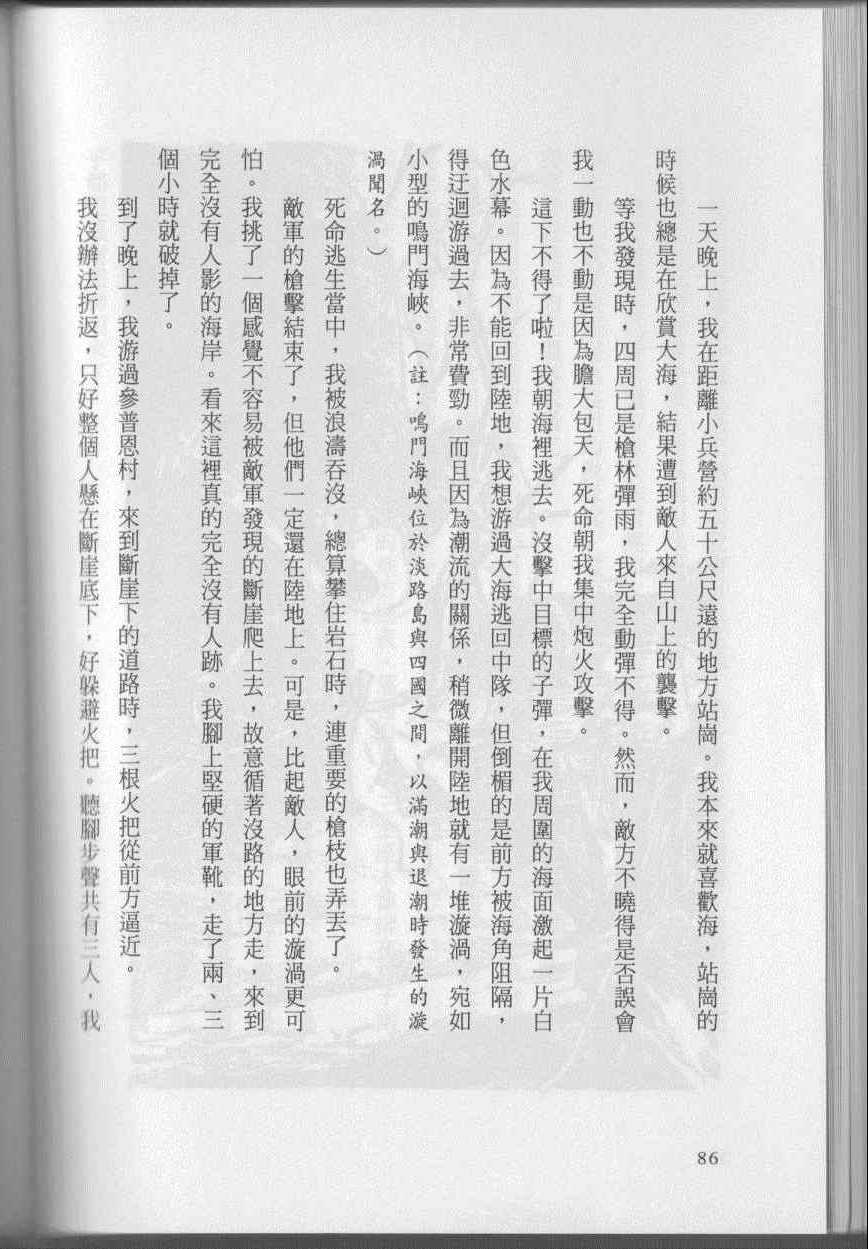 一天晚上，我在距離小兵營約五十公尺遠的地方站崗。我本來就喜歡海，站崗的
時候也總是在欣賞大海，結果遭到敵人來自山上的襲擊。
等我發現時，四周已是槍林彈雨，我完全動彈不得。然而，敵方不曉得是否誤會
我一動也不動是因為膽大包天，死命朝我集中炮火攻擊。
這下不得了啦！我朝海裡逃去。沒擊中目標的子彈，在我周圍的海面激起一片白
色水幕。因為不能回到陸地，我想游過大海逃回中隊，但倒楣的是前方被海角阻隔，
得迂迴游過去，非常費勁。而且因為潮流的關係，稍微離開陸地就有一堆漩渦，宛如
小型的鳴門海峽。（註：鳴門海峽位於淡路島與四國之間，以滿潮與退潮時發生的漩
渦聞名。）
死命逃生當中，我被浪濤吞沒，總算攀住岩石時，連重要的槍枝也弄丟了。
敵軍的槍擊結束了，但他們一定還在陸地上。可是，比起敵人，眼前的漩渦更可
怕。我挑了一個感覺不容易被敵軍發現的斷崖爬上去，故意循著沒路的地方走，來到
完全沒有人影的海岸。看來這裡真的完全沒有人跡。我腳上堅硬的軍靴，走了兩、三
個小時就破掉了。
到了晚上，我游過參普恩村，來到斷崖下的道路時，三根火把從前方逼近。
我沒辦法折返，只好整個人懸在斷崖底下，好躲避火把。聽腳步聲共有三人，我
86